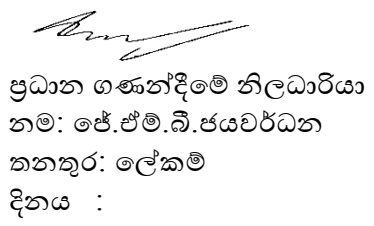 ප්‍රධාන ගණන්දීමේ නිලධාරියා
නම: ජේ.ඒම්.බී.ජයවර්ධන
තනතුර: ලේකම්
දිනය :